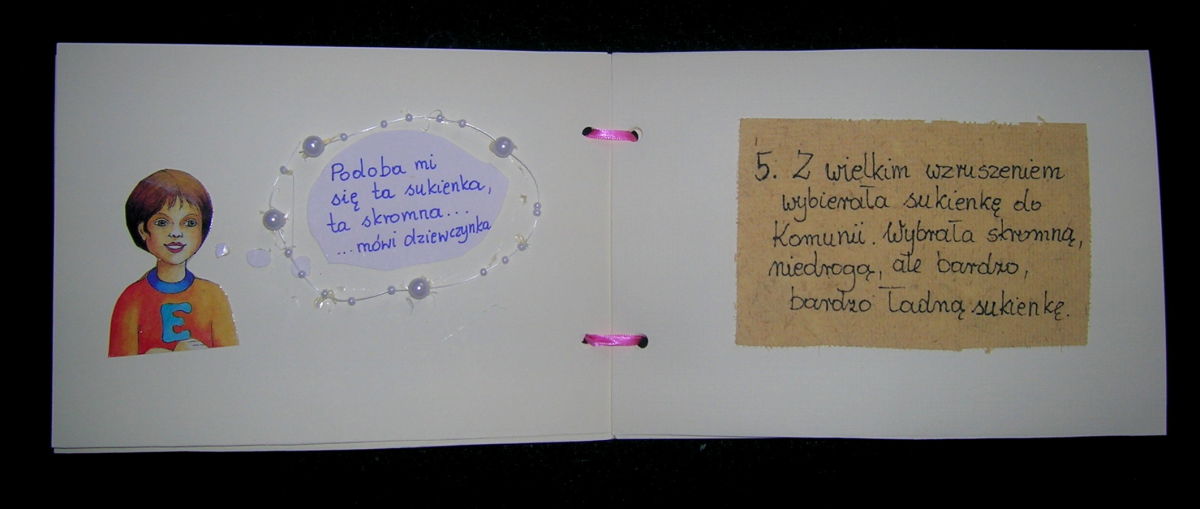 E
Podoba mi
się ta sukienka,
ta skromna...
...mówi dziewczynka
5. Z wielkim wzruszeniem
wybierała sukienkę do
Komunii. Wybrała skromną,
niedrogą, ale bardzo,
bardzo ładną sukienkę.